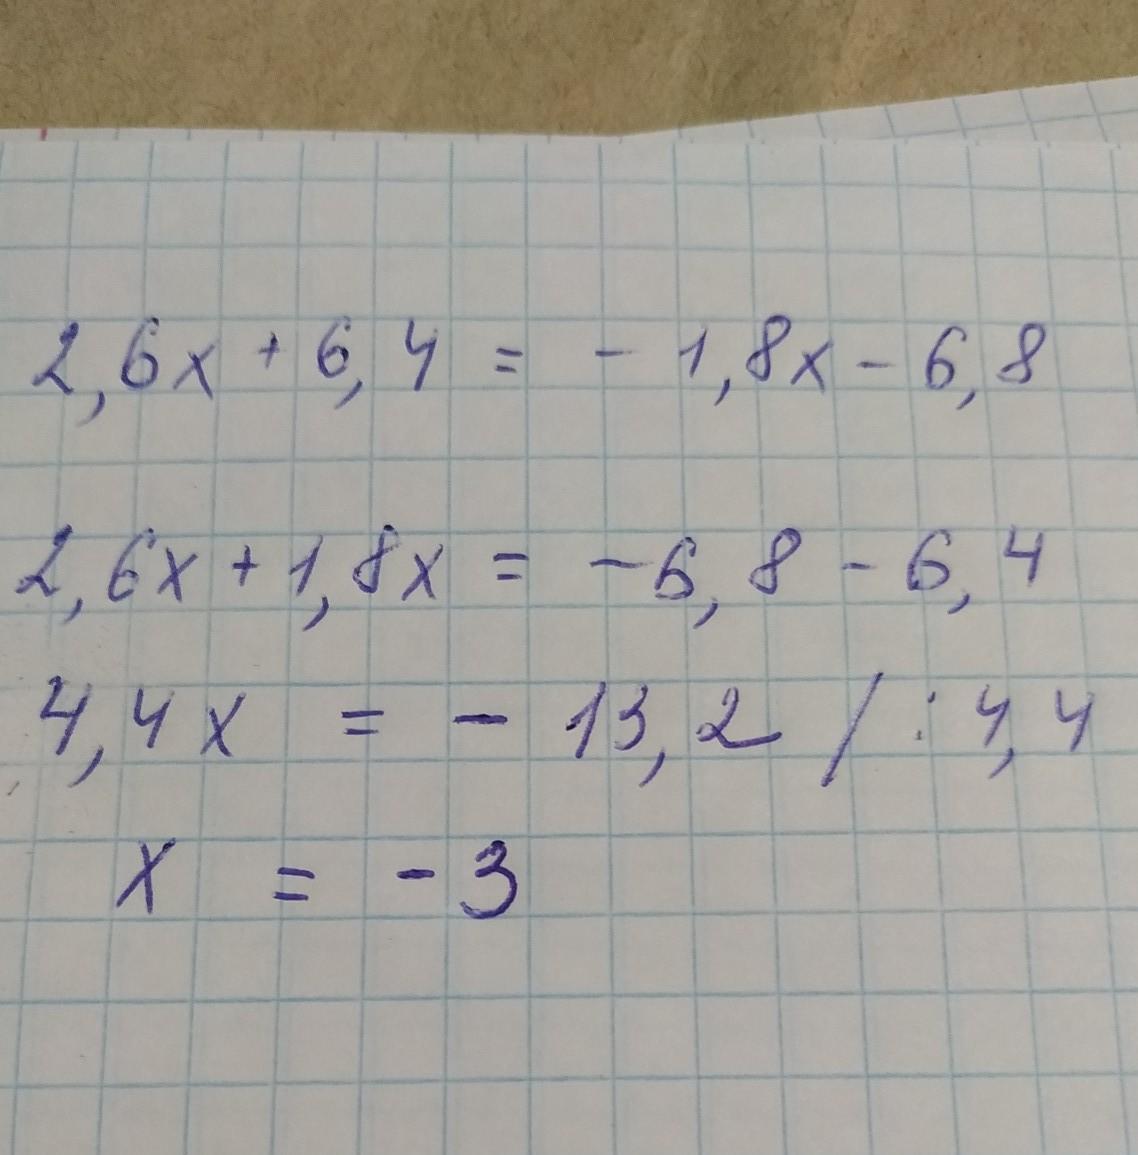 2,6x + 6,4 = - 1,8x - 6,8
2,6x + 1,8x = -6,8 - 6,4
4,4x = - 13,2 / : 4,4
x = - 3